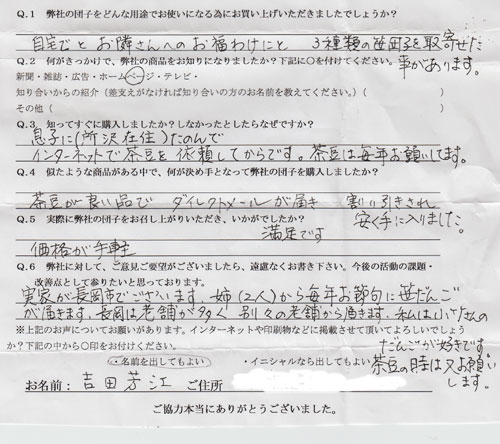 Q.1 弊社の団子をどんな用途でお使いになる為にお買い上げいただきましたでしょうか?
自宅でと お隣さんへのお福わけにと 3種類の笹団子を取寄せた
事があります。
Q.2 何がきっかけで、弊社の商品をお知りになりましたか?下記に○を付けてください。
新聞・雑誌・広告・ホームページ・テレビ・
知り合いからの紹介(差支えがなければ知り合いの方のお名前を教えてください。)( )
その他( )
Q.3 知ってすぐに購入しましたか?しなかったとしたらなぜですか?
息子に(所沢在住)たのんで
インターネットで茶豆を依頼してからです。茶豆は毎年お願いしてます。
Q.4 似たような商品がある中で、何が決め手となって弊社の団子を購入しましたか?
茶豆が良い品で ダイレクトメールが届き 割り引きされ
安く手に入りました。
Q.5 実際に弊社の団子をお召し上がりいただき、いかがでしたか?
満足です
価格が手軽
Q.6 弊社に対して、ご意見ご要望がございましたら、遠慮なくお書き下さい。今後の活動の課題・
改善点として参りたいと思っております。
実家が長岡市でございます。姉(2人)から毎年お節句に笹だんご
が届きます。長岡は老舗が多く 別々の老舗から届きます。私は
だんごが好きです。
茶豆の時は又お願い
します。
※上記のお声についてお願いがあります。インターネットや印刷物などに掲載させて頂いてよろしいでしょう
か?下記の中から○印をお付けください。
・名前を出してもよい ・イニシャルなら出してもよい
お名前: 吉田芳江 ご住所
ご協力本当にありがとうございました。